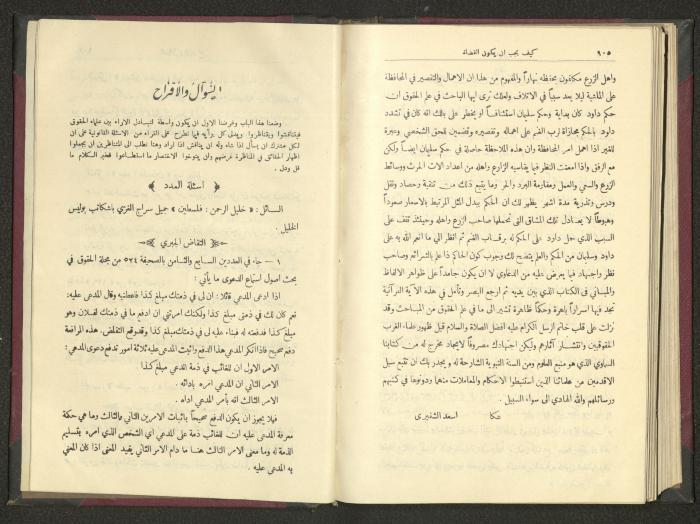 ٩٠٥
كيف يجب ان يكون القضاة
واهل الزرع مكلفون بحفظه نهاراً والمفهوم من هذا ان الاهمال والتقصير في المحافظة
على الماشية ليلا يعد سبباً في الاتلاف ولعلك ترى ايها الباحث في علم الحقوق ان
حكم داود كان بداية وحكم سليمان استئنافاً او يخطر على بالك انه كان في تشدد
داود بالحكم مجازاة لرب الغنم على اهماله وتقصيره وتضمين للحق الشخصي وعبرة
للغير اذا اهمل امر المحافظة وان هذه الملاحظة حاصلة في حكم سليمان ايضاً ولكن
مع الرفق واذا امعنت النظر فيما يقاسيه الزارع واهله من اعداد الات الحرث ووسائط
الزرع والسعي والعمل ومقاومة البرد والحر وما يتبع ذلك من تنقية وحصاد ونقل
ودرس وتذرية مدة اشهر يظهر لك ان الحكم ببدل المثل المرتبط بالاسعار صعوداً
وهبوطاً لا يعادل تلك المشاق التي تحملها صاحب الزرع واهله وحينئذ تقف على
السبب الذي حمل داود على الحكم له برقاب الغنم ثم انظر الى ما انعم الله به على
داود وسليمان من الحكم والعلم يتضح لك وجوب كون الحاكم ذا علم بالشرائع وصاحب
نظر واجتهاد فيما يعرض عليه من الدعاوي لا ان يكون جامداً على ظواهر الالفاظ
والمباني في الكتاب الذي بين يديه ثم ارجع البصر وتأمل في هذه الآية القرآنية
تجد فيها اسراراً باهرة وحكماً ظاهرة تشير الى ما في علم الحقوق من المباحث وقد
نزلت على قلب خاتم الرسل الكرام عليه افضل الصلاة والسلام قبل ظهور علماء الغرب
الحقوقيين وانتشار آثارهم وليكن اجتهادك مصروفاً لايجاد مخرج له من كتابنا
السماوي الذي هو منبع العلوم ومن السنة النبوية الشارحة له ويجدر بك ان تتبع سبيل
الاقدمين من علمائنا الذين استنبطوا الاحكام والمعاملات منها ودونوها في كتبهم
ورسائلهم والله الهادي الى سواء السبيل .
عكا اسعد الشقيري
السؤال والاقتراح
وضعنا هذا الباب وغرضنا الاول ان يكون واسطة لتبادل الاراء بين علماء الحقوق
فيتناقشوا ويتناظروا ويدلي كل برأيه فيما نطرح على القراء من الاسئلة القانونية على ان
لكل مشترك ان يسأل اذا شاء وله ان يناقش اذا اراد وهنا نطلب الى المتناظرين ان يجعلوا
اظهار الحقائق في المناظرة غرضهم وان يتوخوا الاختصار ما استطاعوا فخير الكلام ما
قل ودل .
﴿ اسئلة العدد ﴾
السائل : « خليل الرحمن : فلسطين » جميل سراج الغزي باشكاتب بوليس
الخليل .
﴿ التقاض الجبري ﴾
١ – جاء في العددين السابع والثامن بالصحيفة ٥٧٤ من مجلة الحقوق في
بحث اصول استماع الدعوى ما يأتي :
اذا ادعى المدعي قائلا : ان لي في ذمتك مبلغ كذا فاعطنيه وقال المدعى عليه :
نعم كان لك في ذمتي مبلغ كذا ولكنك امرتني ان ادفع ما في ذمتك لفلان وهو
مبلغ كذا فدفعته له فبناء عليه لي في ذمتك مبلغ كذا وقد وقع التقاض . هذه المرافعة
دفع صحيح فاذا انكر المدعي هذا الدفع واثبت المدعى عليه ثلاثة امور تدفع دعوى المدعي :
الامر الاول ان للغائب في ذمة المدعي مبلغ كذا
الامر الثاني ان المدعي امره بادائه .
الامر الثالث انه بأمر المدعي اداه .
فهلا يجوز ان يكون الدفع صحيحاً باثبات الامرين الثاني والثالث وما هي حكمة
معرفة المدعى عليه ان للغائب ذمة على المدعي اي الشخص الذي امره بتسليم
الذمة له وما معنى الامر الثالث هنا ما دام الامر الثاني يفيد المعنى اذا كان المعني
به المدعى عليه .